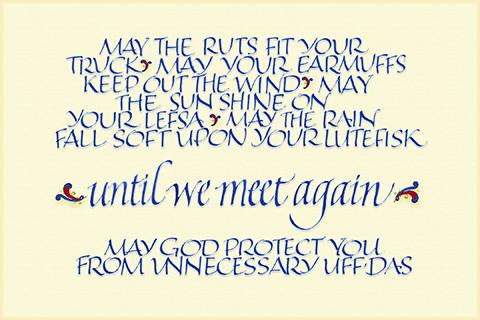 MAY THE RUTS FIT YOUR
TRUCK MAY YOUR EARMUFFS
KEEP OUT THE WIND MAY
THE SUN SHINE ON
YOUR LEFSA MAY THE RAIN
FALL SOFT UPON YOUR LUTEFISK
until we meet again
MAY GOD PROTECT YOU
FROM UNNECESSARY UFF·DAS